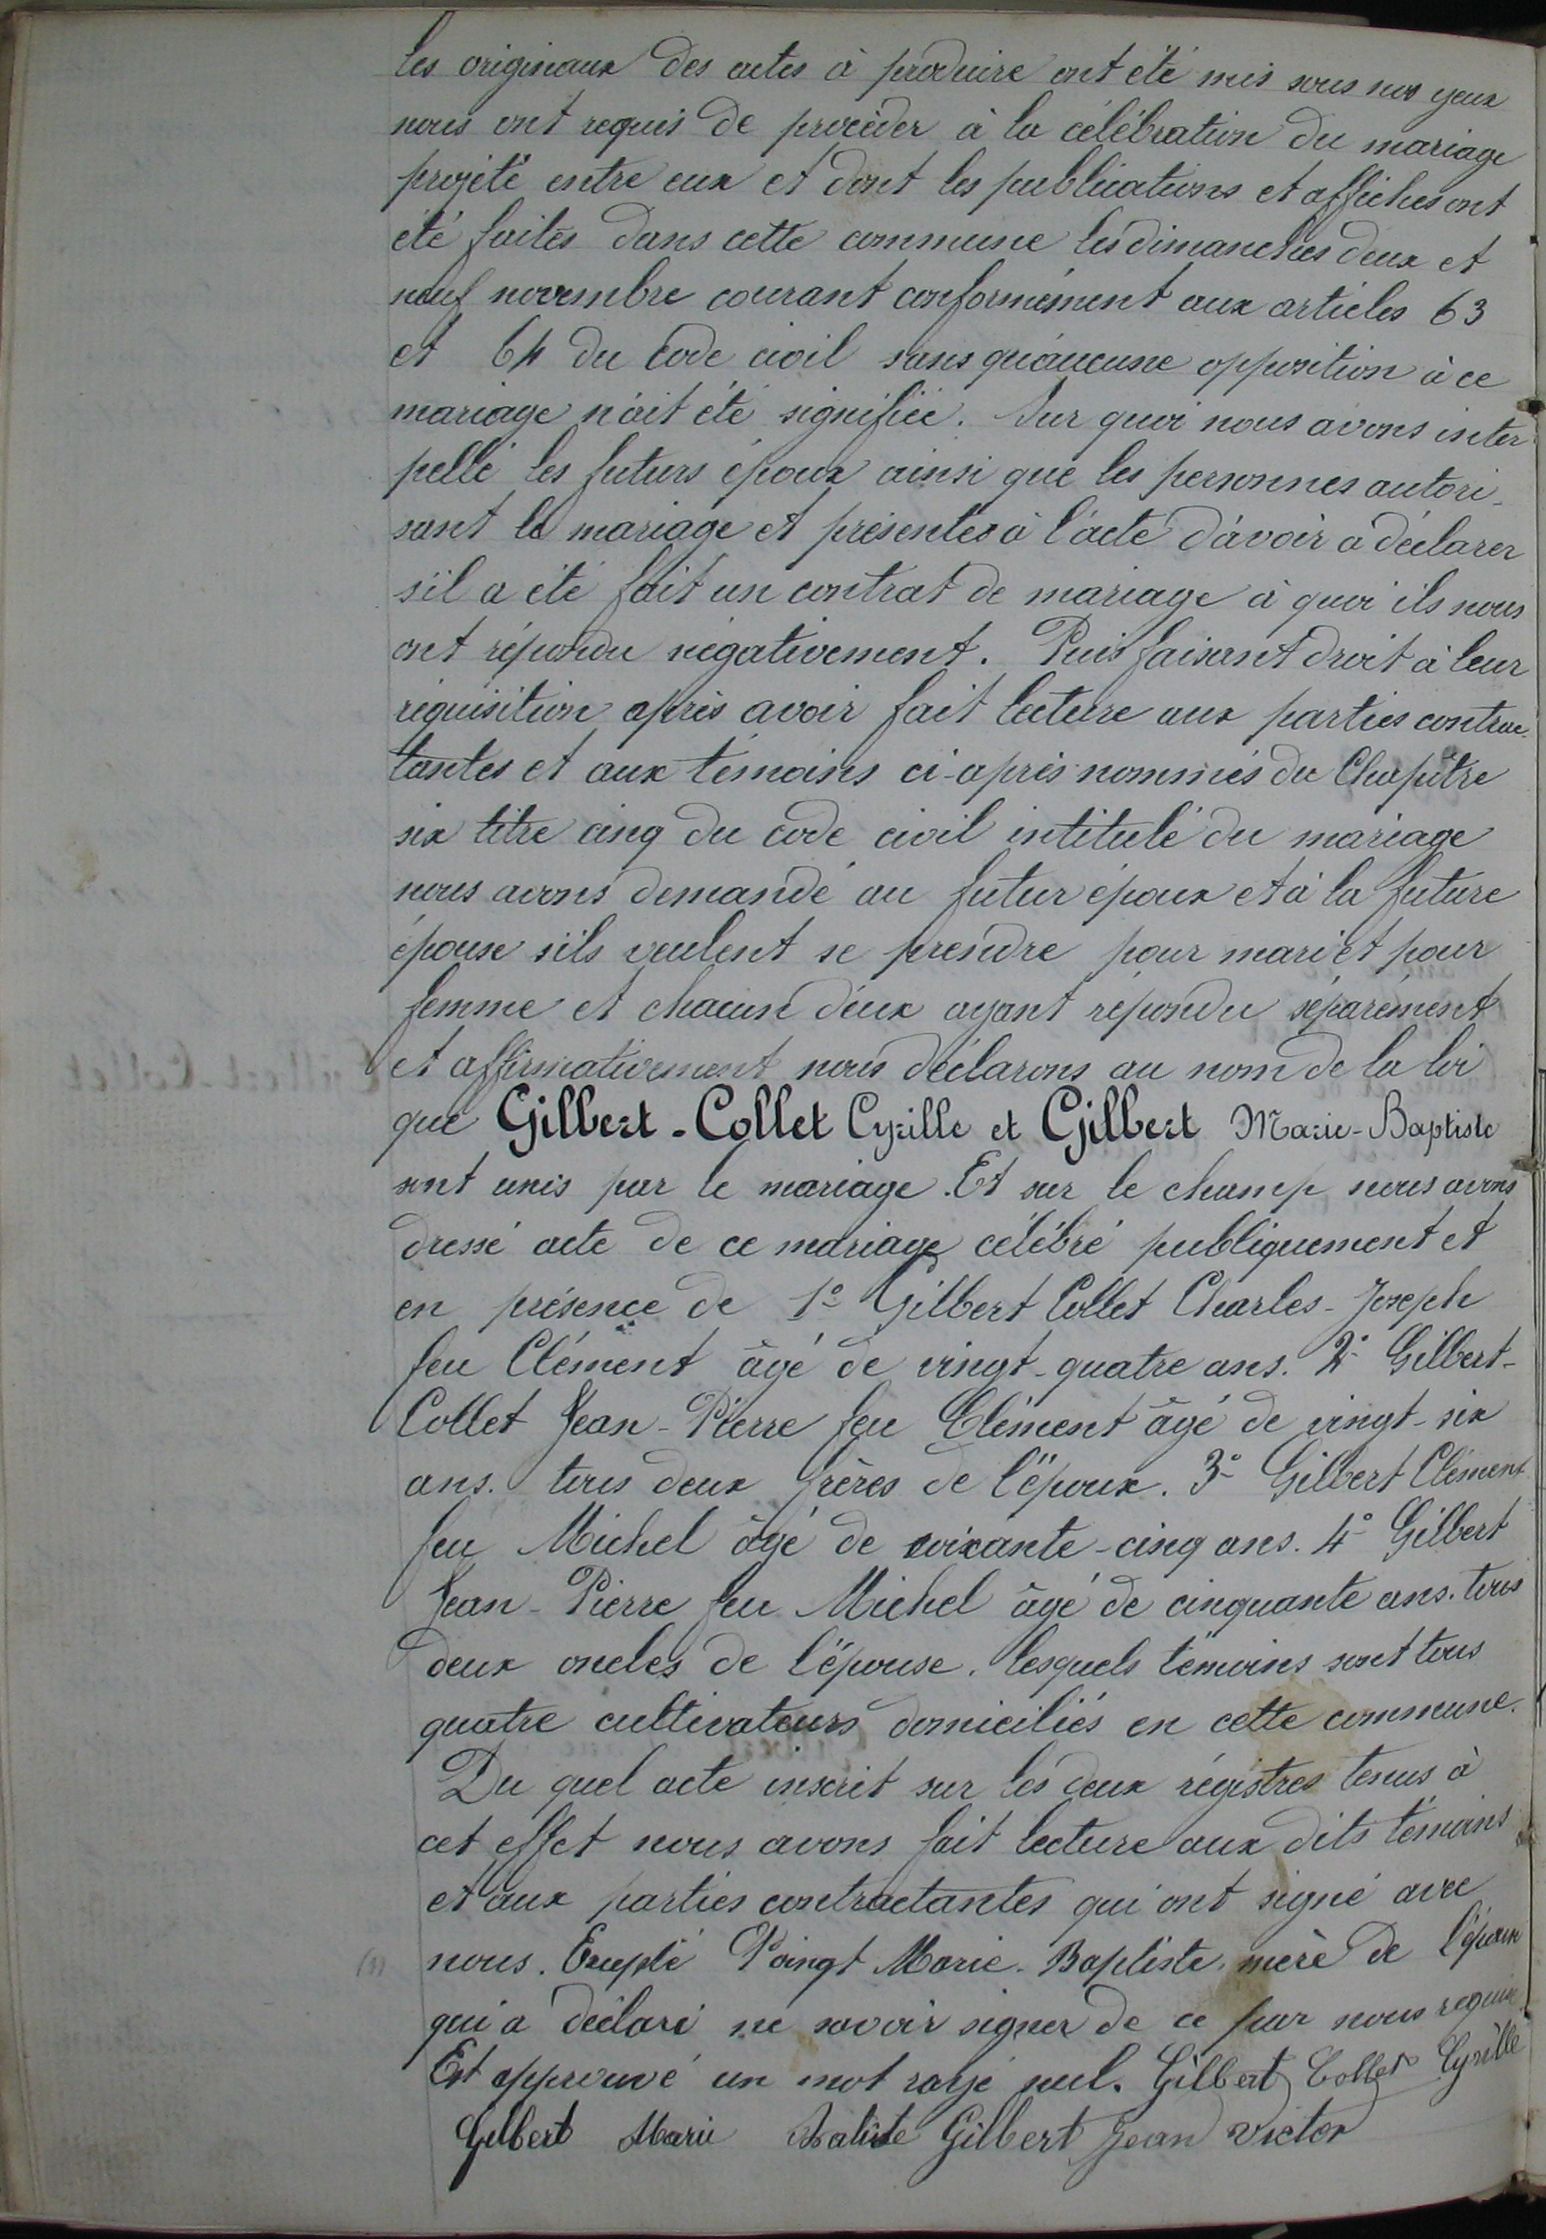 les originaux des actes à produire ont été mis sous nos yeux
nous ont requis de procéder à la célébration du mariage
projeté entre eux et dont les publications et affiches ont
été faites dans cette commune les dimanches deux et
neuf novembre courant conformément aux articles 63
et 64 du Code civil sans qu'aucune opposition à ce
mariage n'ait été signifiée. Sur quoi nous avons inter
pellé les futurs époux ainsi que les personnes autori-
sant le mariage et présentes à l'acte d'avoir à déclarer
s'il a été fait un contrat de mariage à quoi ils nous
ont répondu négativement. Puis faisant droit à leur
réquisition après avoir fait lecture aux parties contrac-
tantes et aux témoins ci-après nommés du Chapitre
six titre cinq du code civil intitulé du mariage
nous avons demandé au futur époux et à la future
épouse s'ils veulent se prendre pour mari et pour
femme et chacun d'eux ayant répondu séparément
et affirmativement nous déclarons au nom de la loi
que Gilbert-Collet Cyrille et Gilbert Marie-Baptiste
sont unis par le mariage. Et sur le champ nous avons
dressé acte de ce mariage célébré publiquement et
en présence de 1° Gilbert Collet Charles-Joseph
feu Clément âgé de vingt-quatre ans. 2° Gilbert-
Collet Jean-Pierre feu Clément âgé de vingt-six
ans. tous deux frères de l'époux. 3° Gilbert Clément
feu Michel âgé de soixante-cinq ans. 4° Gilbert
Jean-Pierre feu Michel âgé de cinquante ans. tous
deux oncles de l'épouse. lesquels témoins sont tous
quatre cultivateurs domiciliés en cette commune.
Du quel acte inscrit sur les deux régistres tenus à
cet effet nous avons fait lecture aux dits témoins
et aux parties contractantes qui ont signé avec
nous. Excepté Poingt Marie-Baptiste, mère de l'époux
qui a déclaré ne savoir signer de ce par nous requise
Est approuvé un mot rayé nul. Gilbert Collet Cyrille
Gilbert Marie Batiste Gilbert Jean Victor